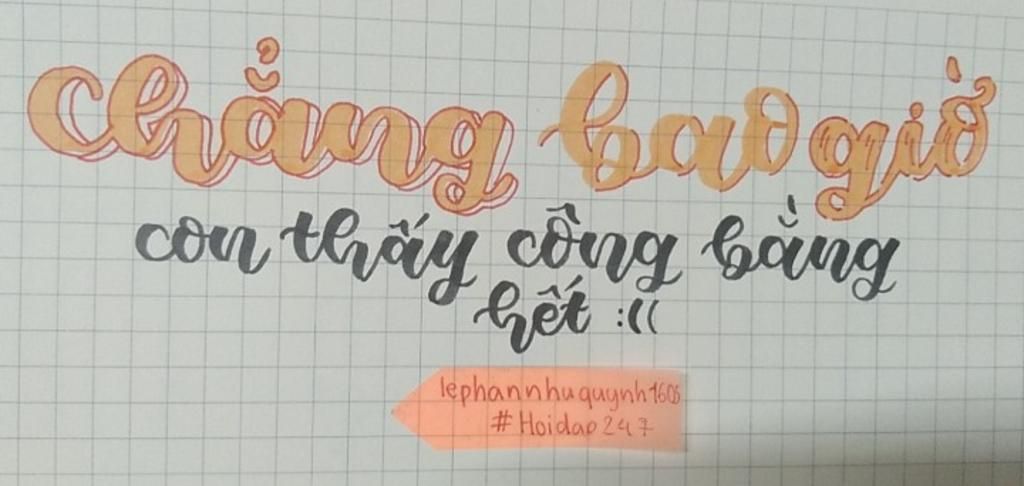 chẳng bao giờ
con thấy công bằng
hết :((
lephannhuquynh1606
#Hoidap247